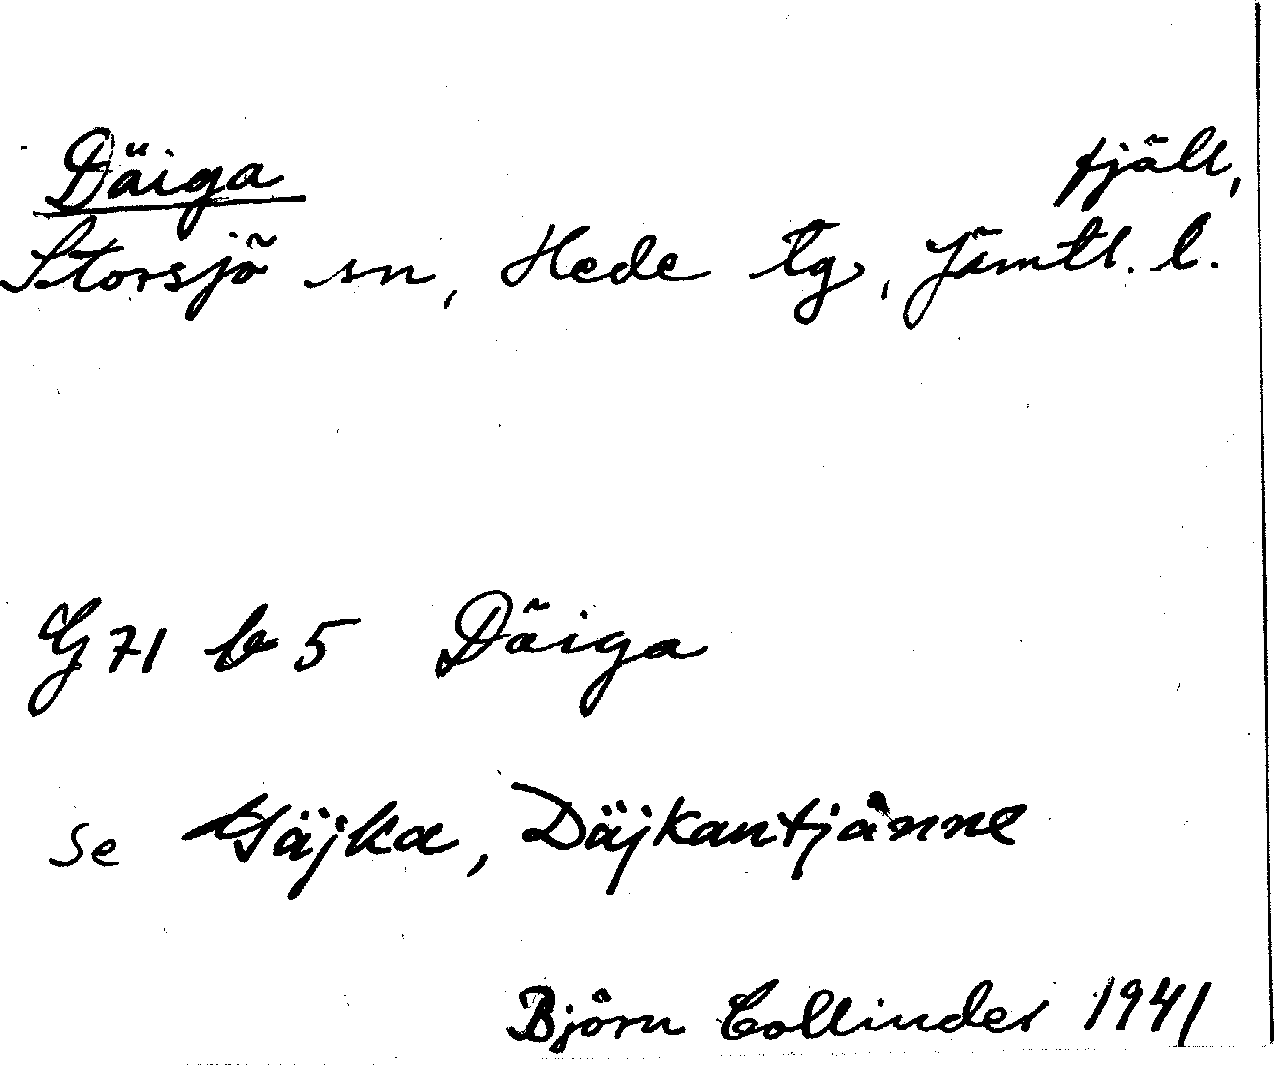 Däiga fjäll,
Storsjö sn, Hede tg, Jämtl. l.
G 71 b 5 Däiga
Se Däjkantjänne
Björn Collinder 1941